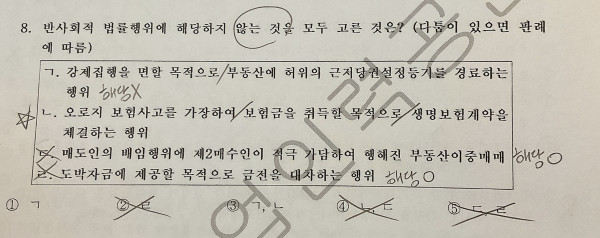 8. 반사회적 법률행위에 해당하지 않는 것을 모두 고른 것은? (다툼이 있으면 판례
에 따름)
ㄱ. 강제집행을 면할 목적으로 부동산에 허위의 근저당권설정등기를 경료하는
행위 해당X
ㄴ. 오로지 보험사고를 가장하여 보험금을 취득할 목적으로 생명보험계약을
체결하는 행위
ㄷ. 매도인의 배임행위에 제2매수인이 적극 가담하여 행해진 부동산이중매매 해당O
ㄹ. 도박자금에 제공할 목적으로 금전을 대차하는 행위 해당O
① ㄱ ② ㄹ ③ ㄱ, ㄴ ④ ㄴ, ㄷ ⑤ ㄷ, ㄹ